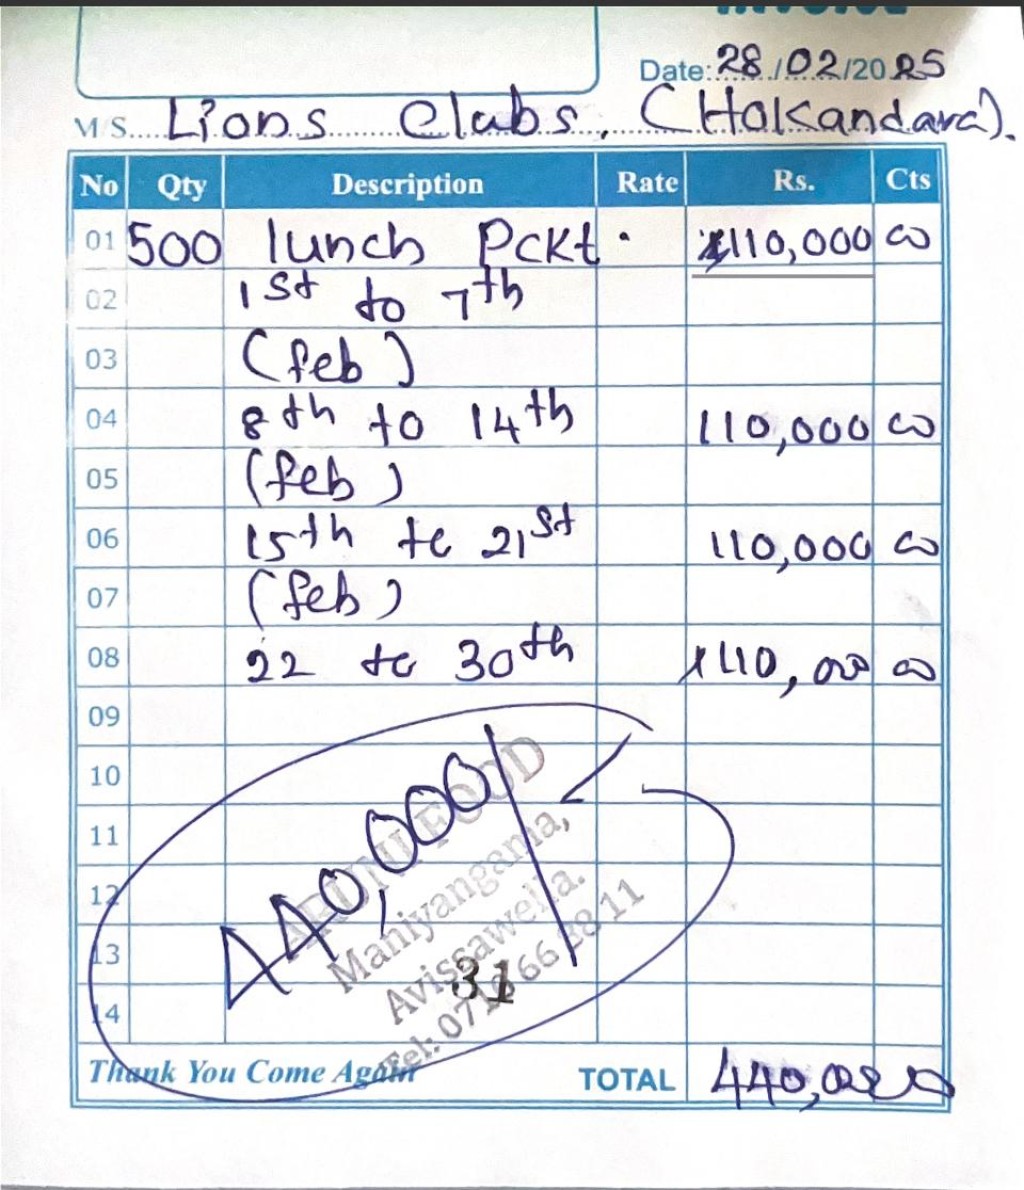 INVOICE
Date: 28/02/2025
M/S. Lions Clubs, (Hokandara).
No Qty Description Rate Rs. Cts
01 500 lunch Pckt. 110,000 00
02 1st to 7th
03 (feb)
04 8th to 14th 110,000 00
05 (feb)
06 15th to 21st 110,000 00
07 (feb)
08 22 to 30th 110,000 00
09
10
11
12
13
14
440,000/
FOOD
Maniyangama,
Avissawella.
Tel: 071 66 88 11
31
Thank You Come Again TOTAL 440,000 00